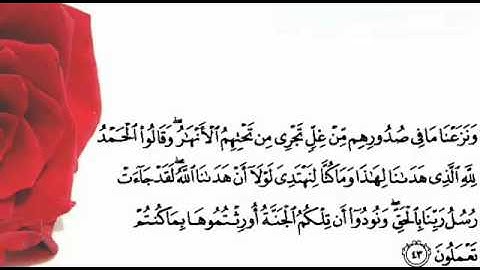 وَنَزَعْنَا مَا فِي صُدُورِهِم مِّنْ غِلٍّ تَجْرِي مِن تَحْتِهِمُ الْأَنْهَٰرُ ۖ وَقَالُوا۟ الْحَمْدُ
لِلَّهِ الَّذِي هَدَىٰنَا لِهَٰذَا وَمَا كُنَّا لِنَهْتَدِيَ لَوْلَآ أَنْ هَدَىٰنَا اللَّهُ ۖ لَقَدْ جَآءَتْ
رُسُلُ رَبِّنَا بِالْحَقِّ ۖ وَنُودُوٓا۟ أَن تِلْكُمُ الْجَنَّةُ أُورِثْتُمُوهَا بِمَا كُنتُمْ
تَعْمَلُونَ ٤٣